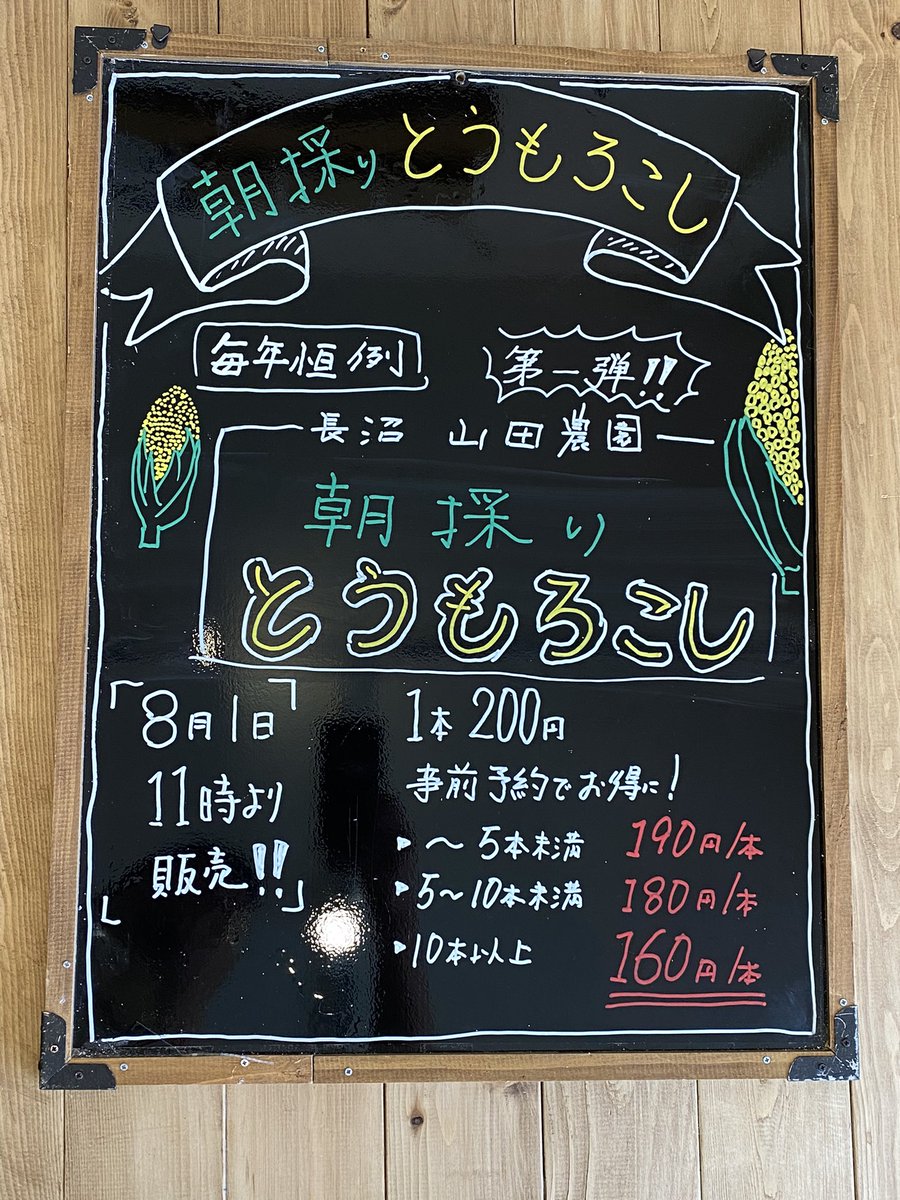 朝採りとうもろこし
毎年恒例
第一弾!!
長沼 山田農園
朝採り
とうもろこし
「8月1日
11時より
販売!!」
1本 200円
事前予約でお得に!
▶〜5本未満 190円/本
▶5〜10本未満 180円/本
▶10本以上 160円/本